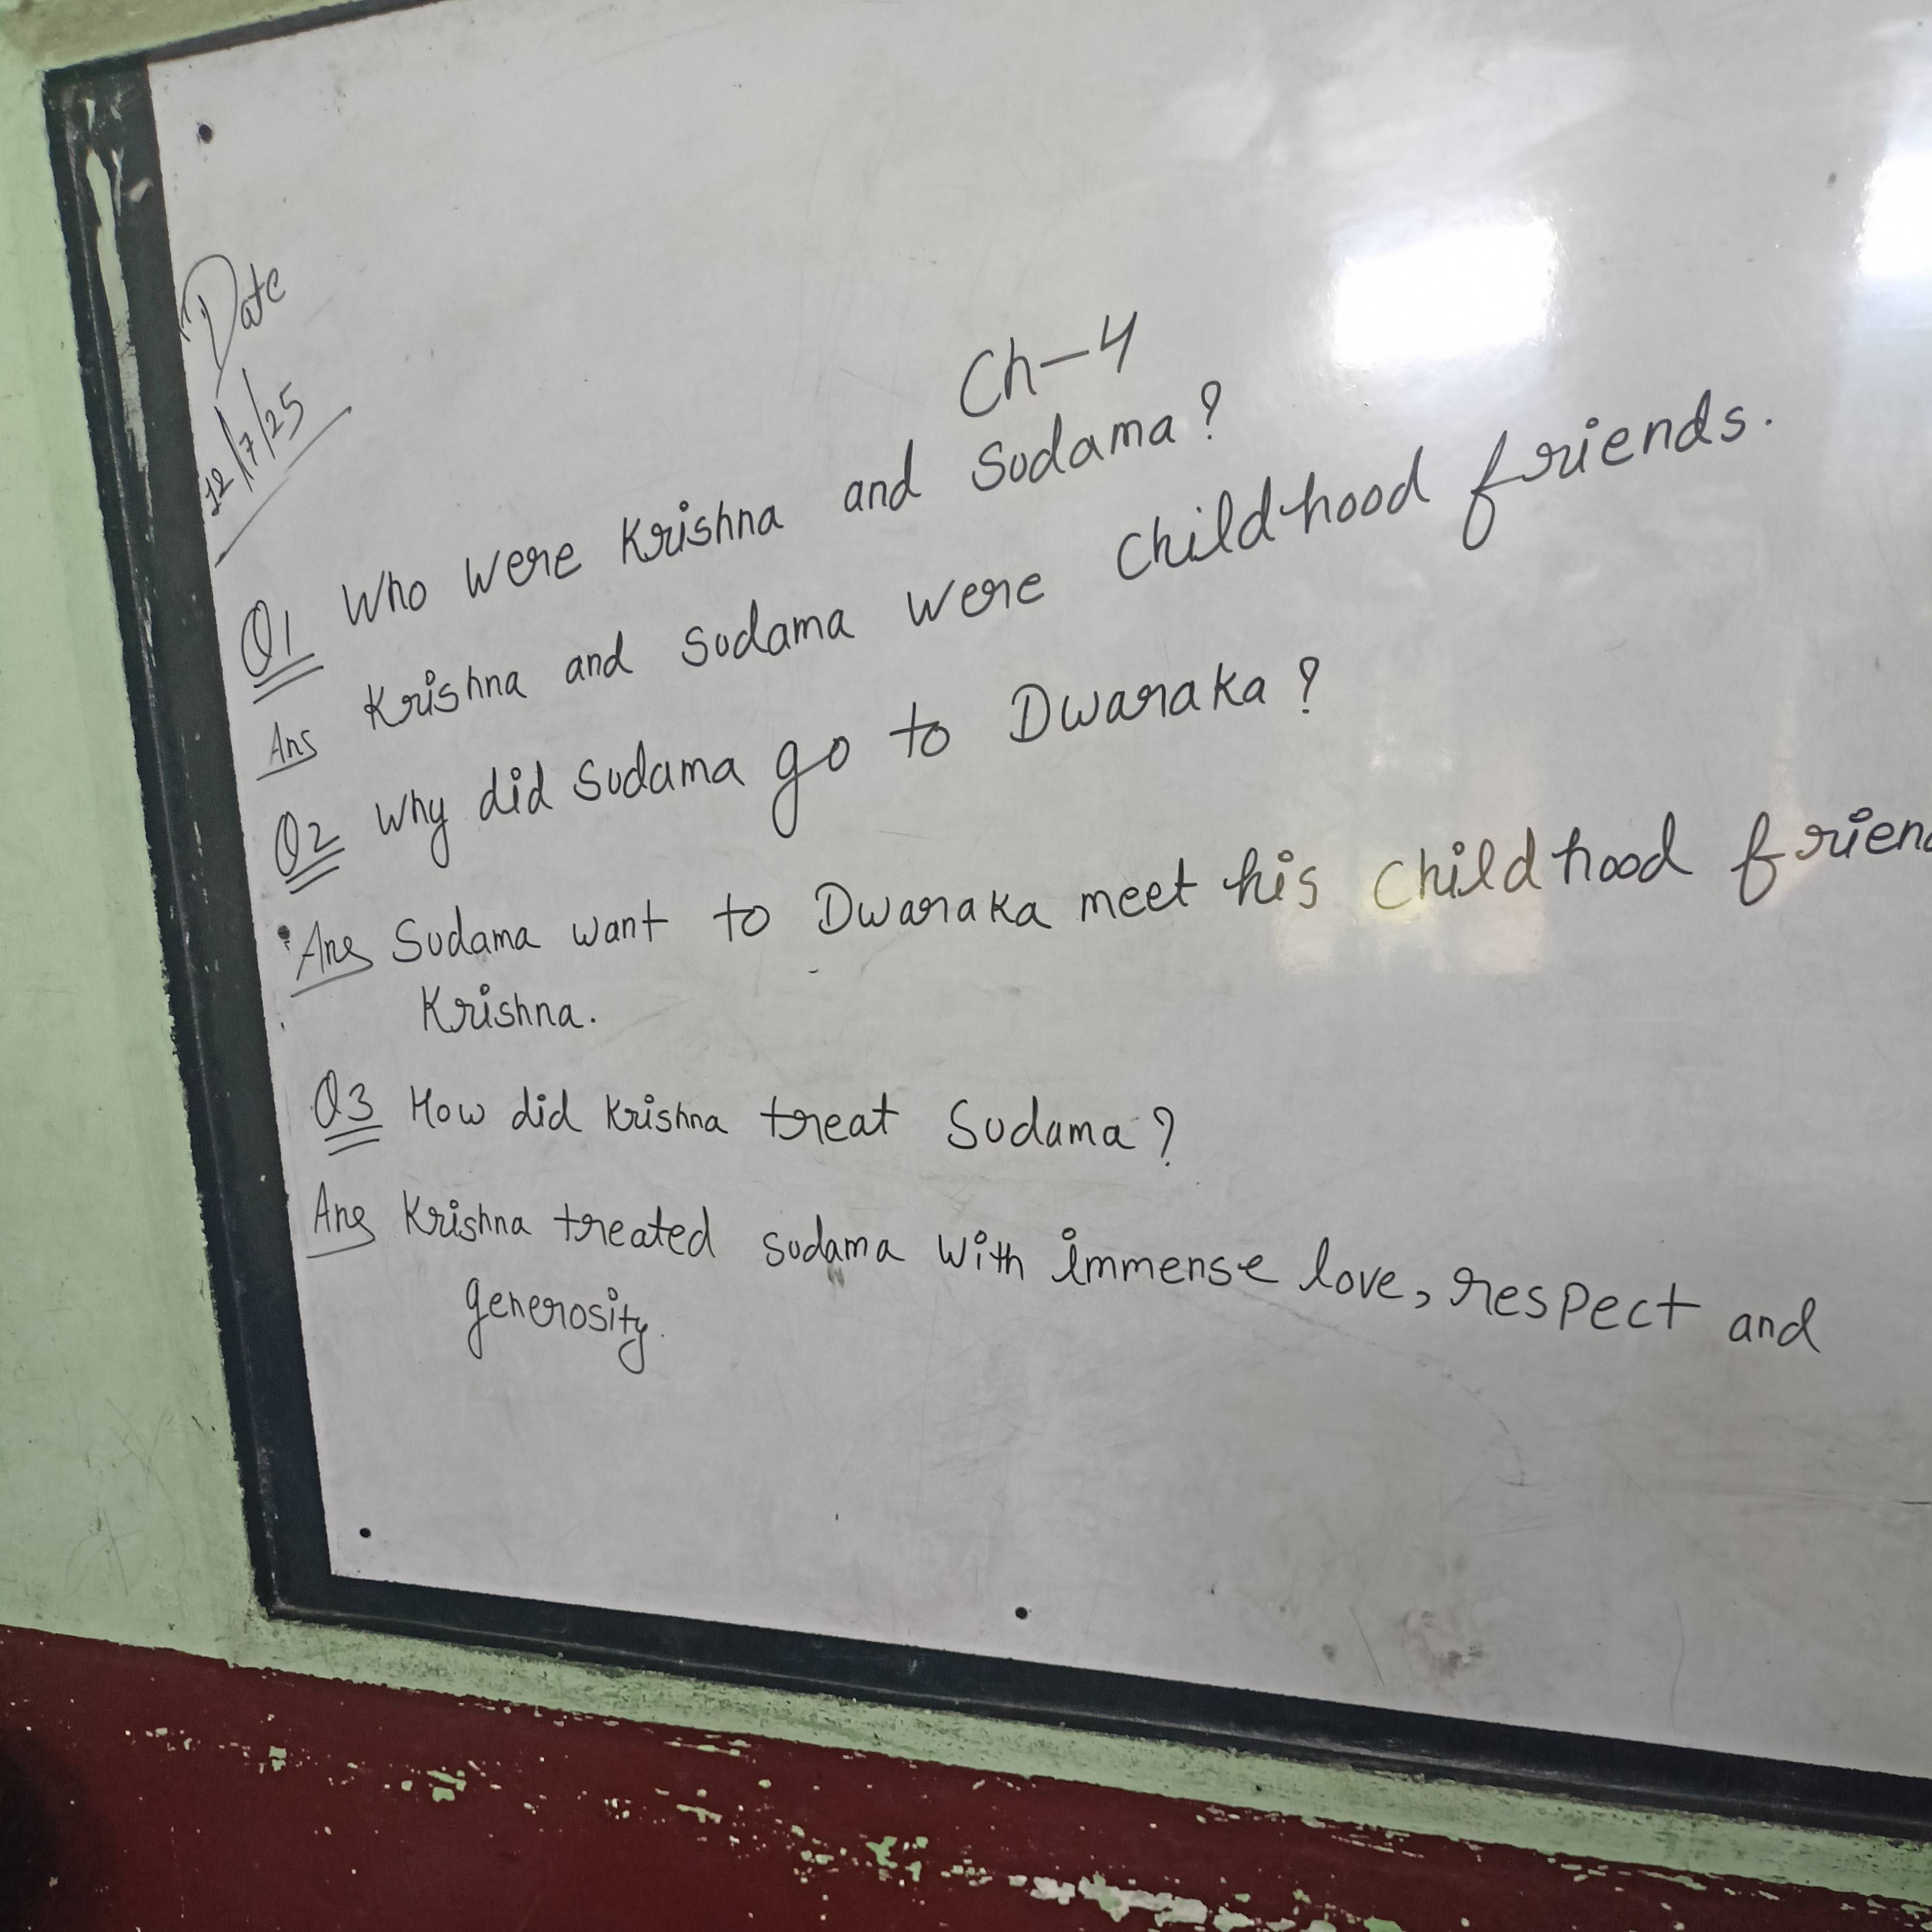 Date
12/7/25
Ch-4
Q1 Who were Krishna and Sudama?
Ans Krishna and Sudama were childhood friends.
Q2 Why did Sudama go to Dwaraka?
Ans Sudama want to Dwaraka meet his childhood frien
Krishna.
Q3 How did Krishna treat Sudama?
Ans Krishna treated sudama with immense love, respect and
generosity.